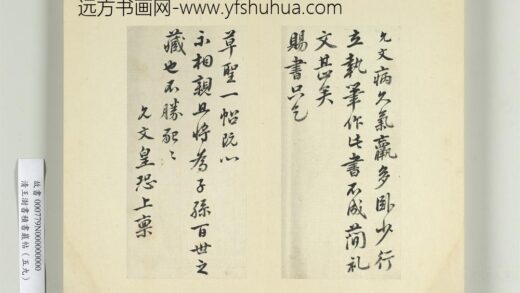 远方书画网-www.yfshuhua.com
允文病久氣羸多卧少行
立執筆作此書不成簡礼
文甚矣
賜書只乞
草聖一帖既心
示相親且将為子孫百世之
藏也不勝
允文皇恐上稟
故書000779N000000000
清王澍書積書巖帖(五九)